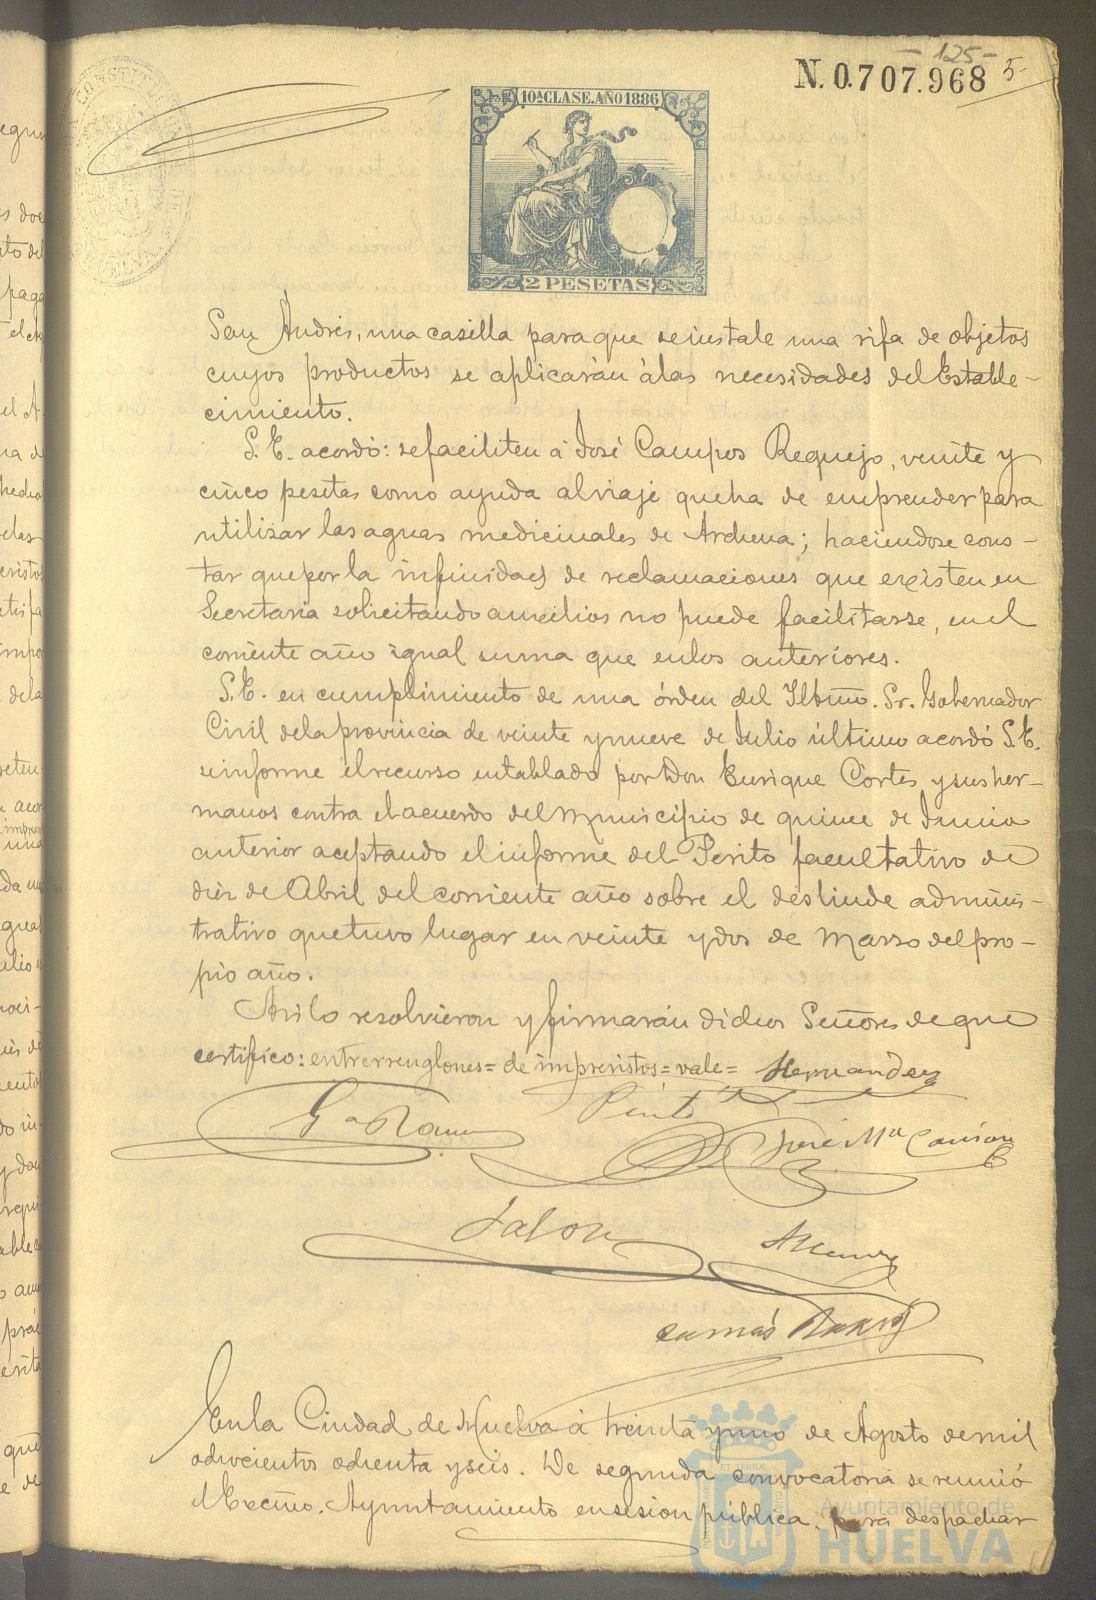 -125-
N. 0.707.968 5
10ª CLASE. AÑO 1886
2 PESETAS
CONSTIT
HUELVA
San Andrés, una casilla para que se instale una rifa de objetos
cuyos productos se aplicarán á las necesidades del Estable-
cimiento.
S. E. acordó: se faciliten á José Campos Requejo, veinte y
cinco pesetas como ayuda al viaje que ha de emprender para
utilizar las aguas medicinales de Archena; haciendose cons-
tar que por la infinidad de reclamaciones que existen en
Secretaria solicitando auxilios no puede facilitarse, en el
corriente año igual suma que en los anteriores.
S. E. en cumplimiento de una órden del Iltmo. Sr. Gobernador
Civil de la provincia de veinte y nueve de Julio último acordó S. E.
se informe el recurso entablado por Don Enrique Cortes y sus her-
manos contra el acuerdo del Municipio de quince de Junio
anterior aceptando el informe del Perito facultativo de
diez de Abril del corriente año sobre el deslinde adminis-
trativo que tuvo lugar en veinte y dos de Marzo del pro-
pio año.
Asi lo resolvieron y firmarán dichos Señores de que
certifico: entrerrenglones= de imprevistos= vale= Hernandez
Gª Ramos Pinto José Mª
Jalon
Tomás
En la Ciudad de Huelva á treinta y uno de Agosto de mil
ochocientos ochenta y seis. De segunda convocatoria se reunió
el Excmo. Ayuntamiento en sesion pública, para despachar
Ayuntamiento de
HUELVA